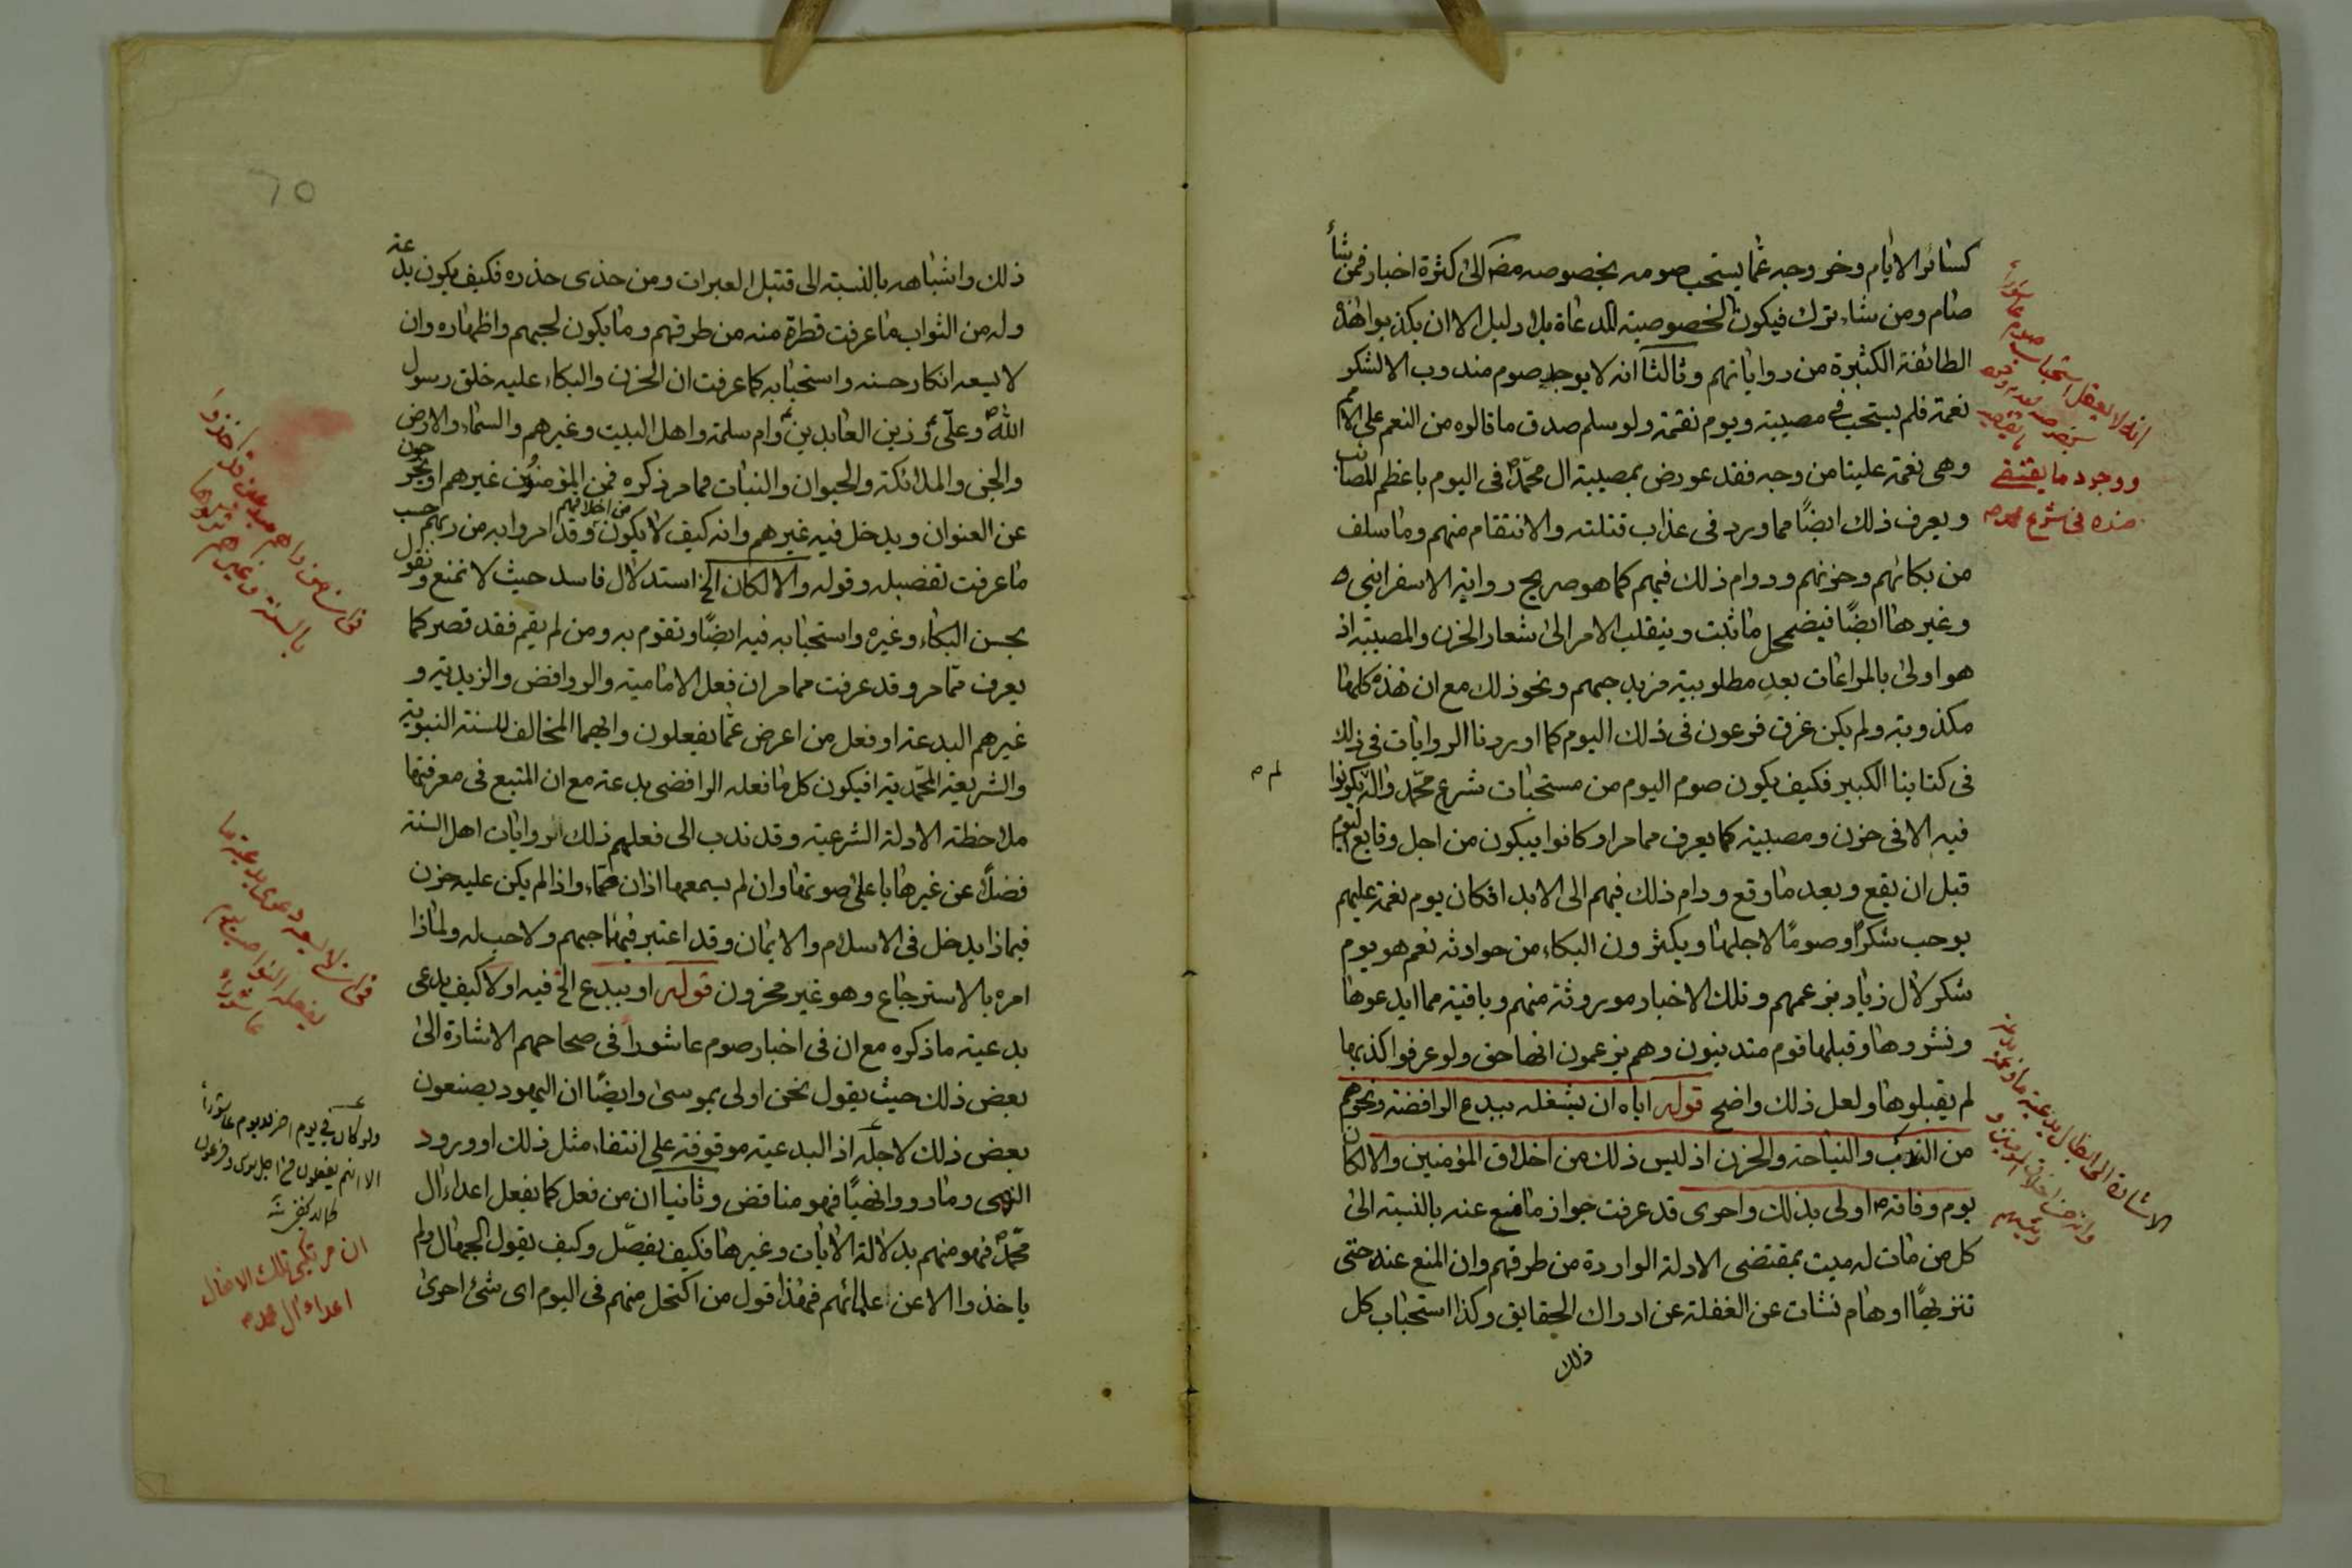 كسائر الايام وخروجه عما يستحب صومه بخصوصه مضى الى كثرة اخبار فمن شأ
صام ومن شاء ترك فيكون الخصوصية المدعاة بلا دليل الا ان يكذبوا هذه
الطائفة الكثيرة من رواياتهم وثالثا انه لا يوجد صوم مندوب الا لشكر
نعمة فلم يستحب في مصيبة ويوم نقمة ولو سلم صدق ما قالوه من النعم على الامم
وهى نعمة علينا من وجه فقد عورض بمصيبة ال محمد ص فى اليوم باعظم المصائب
ويعرف ذلك ايضًا مما ورد فى عذاب قتلته والانتقام منهم وما سلف
من بكائهم وحزنهم ودوام ذلك فيهم كما هو صريح رواية الاسفراينى ه
وغيرها ايضًا فيضمحل ما ثبت وينقلب الامر الى شعار الحزن والمصيبة اذ
هو اولى بالمراعات بعد مطلوبية مزيد حبهم ونحو ذلك مع ان هذه كلها
مكذوبة ولم يكن غرق فرعون فى ذلك اليوم كما اوردنا الروايات فى ذلك
فى كتابنا الكبير فكيف يكون صوم اليوم من مستحبات شرع محمد واله يكونوا
لم ص
فيه الا فى حزن ومصيبة كما يعرف مما مر او كانوا يبكون من اجل وقايع اليوم
قبل ان يقع وبعد ما وقع ودام ذلك فيهم الى الابد افكان يوم نعمة عليهم
يوجب شكرًا وصومًا لاجلها ويكثرون البكاء من حوادثه نعم هو يوم
شكر لال زياد بزعمهم وتلك الاخبار موروثة منهم وباقية مما ابدعوها
ونشروها وقبلها قوم متدينون وهم يزعمون انها حق ولو عرفوا كذبها
لم يقبلوها ولعل ذلك واضح قوله اياه ان يشغله ببدع الرافضة ونحوهم
من الندب والنياحة والحزن اذ ليس ذلك من اخلاق المؤمنين والا لكان
يوم وفاته ص اولى بذلك واحرى قد عرفت جواز ما منع عنه بالنسبة الى
كل من مات له ميت بمقتضى الادلة الواردة من طرقهم وان المنع عنه حتى
تنزيهًا اوهام نشات عن الغفلة عن ادراك الحقايق وكذا استحباب كل
ذلك
انه لا يعقل استحباب صوم عاشوراء
ووجود ما يقتضى
ضده فى شرع محمد ص
الاشارة الى ابطال بدعية
وانه من اخلاق المؤمنين و
٦٥
ذلك واشباهه بالنسبة الى قتيل العبرات ومن حذى حذوه فكيف يكون بدعة
وله من الثواب ما عرفت قطرة منه من طرقهم وما يكون لحبهم واظهاره وان
لا يسعه انكار حسنه واستحبابه كما عرفت ان الحزن والبكاء عليه خلق رسول
الله ص وعلى ع وزين العابدين ع وام سلمة واهل البيت وغيرهم والسماء والارض
والجن والملائكة والحيوان والنبات مما مر ذكره فمن المؤمنون غيرهم او يخرجون
عن العنوان ويدخل فيه غيرهم وانه كيف لا يكون من اخلاقهم وقد امروا به من ربهم حسب
ما عرفت تفصيله وقوله والا لكان الخ استدلال فاسد حيث لا نمنع ونقول
بحسن البكاء وغيره واستحبابه فيه ايضًا ونقوم به ومن لم يقم فقد قصر كما
يعرف مما مر وقد عرفت مما مر ان فعل الامامية والروافض والزيدية و
غيرهم البدعة او فعل من اعرض عما يفعلون وايهما المخالف للسنة النبوية
والشريعة المحمدية افيكون كل ما فعله الرافضى بدعة مع ان المتبع فى معرفتها
ملاحظة الادلة الشرعية وقد ندب الى فعلهم ذلك الروايات اهل السنة
فضلًا عن غيرها باعلى صوتها وان لم يسمعها اذان صماء واذا لم يكن عليه حزن
فيما ذا يدخل فى الاسلام والايمان وقد اعتبر فيهما حبهم ولا حب له ولماذا
امره بالاسترجاع وهو غير محزون قوله او ببدع الخ فيه اولا كيف يدعى
بدعية ما ذكره مع ان فى اخبار صوم عاشورا فى صحاحهم الاشارة الى
بعض ذلك حيث يقول نحن اولى بموسى وايضًا ان اليهود يصنعون
بعض ذلك لاجله اذ البدعية موقوفة على انتفاء مثل ذلك او ورود
النهى وما رووا نهيًا فهو مناقض وثانيا ان من فعل كما يفعل اعداء ال
محمد ص فهو منهم بدلالة الايات وغيرها فكيف يفصّل وكيف يقول الجهال ولم
ياخذوا الا عن علمائهم فهذا قول من اكتحل منهم فى اليوم اى شئ احرى
بالسنة وغيرهم
ولو كان فى يوم اخر لا يوم عاشورا
الا انهم يفعلون من اجل موسى وفرعون
ان مرتكبى تلك الافعال
اعداء ال محمد ص